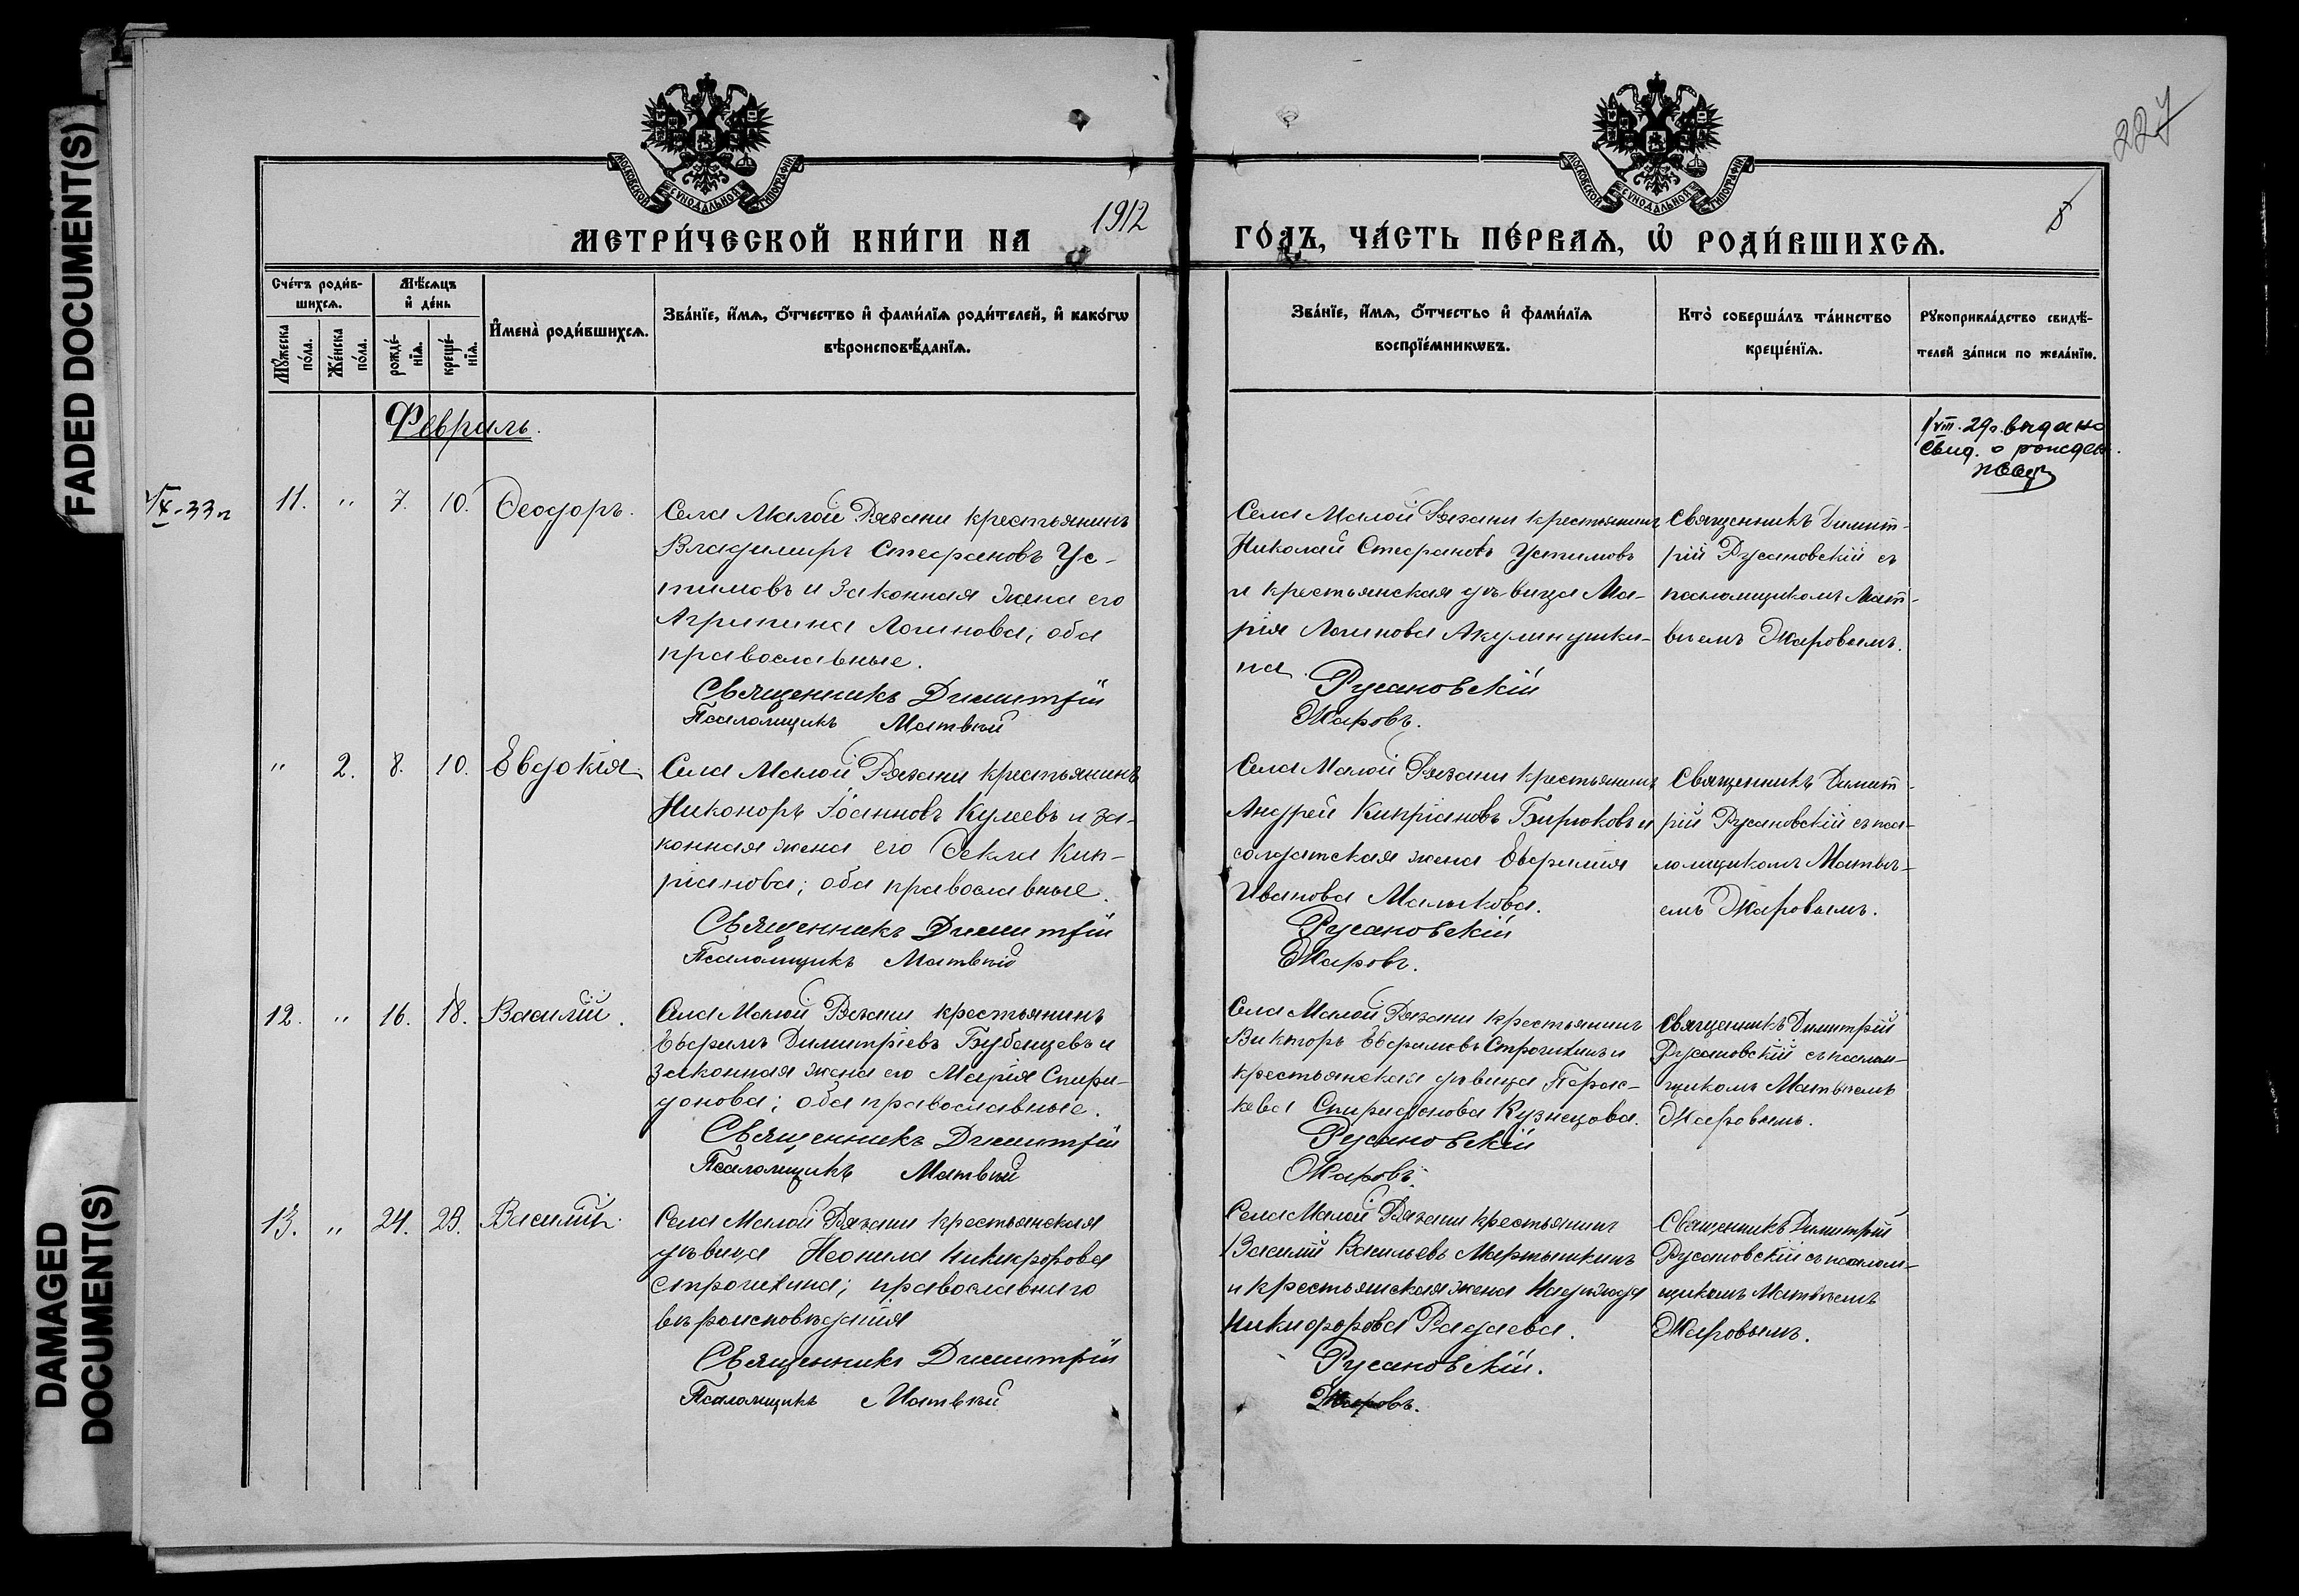 FADED DOCUMENT(S)
DAMAGED DOCUMENT(S)
227
МОСКОВСКОЙ СѴНОДАЛЬНОЙ ТИПОГРАФІИ
МОСКОВСКОЙ СѴНОДАЛЬНОЙ ТИПОГРАФІИ
МЕТРИ́ЧЕСКОЙ КНИ́ГИ НА 1912 ГО́ДЪ, ЧА́СТЬ ПЕ́РВАѦ, Ѡ҆ РОДИ́ВШИХСѦ.
Сче́тъ роди́в-
шихсѧ.
Мꙋ́жеска по́ла.
Же́нска по́ла.
Мѣ́сѧцъ
и҆ де́нь
рожде́-
нїѧ.
креще́-
нїѧ.
И҆мена̀ роди́вшихсѧ.
Зва́нїе, и҆́мѧ, ѻ҆́тчество и҆ фами́лїѧ роди́телей, и҆ како́гѡ
вѣроисповѣ́данїѧ.
Зва́нїе, и҆́мѧ, ѻ҆́тчество и҆ фами́лїѧ
воспрїе́мникѡвъ.
Кто̀ соверша́лъ та́инство
креще́нїѧ.
Рꙋкоприкла́дство свидѣ́-
телей за́писи по жела́нїю.
Февраль.
VIII. 29 г. выдано
свид. о рожден.
X-33 г
11. " 7. 10. Ѳеодоръ.
Села Малой Рязани крестьянинъ
Владимиръ Стефановъ Ус-
тимовъ и законная жена его
Агрипина Логинова; оба
православные.
Священникъ Димитрій
Псаломщикъ Матвѣй
Села Малой Рязани крестьянинъ
Николай Стефановъ Устимовъ
и крестьянская дѣвица Ма-
рія Логинова Акулинушки-
на.
Русановскій
Жаровъ.
Священникъ Димит-
рій Русановскій съ
псаломщикомъ Мат-
вѣемъ Жаровымъ.
" 2. 8. 10. Евдокія.
Села Малой Рязани крестьянинъ
Никоноръ Іоанновъ Кулеевъ и за-
конная жена его Ѳекла Кип-
ріанова; оба православные.
Священникъ Димитрій
Псаломщикъ Матвѣй
Села Малой Рязани крестьянинъ
Андрей Кипріановъ Бирюковъ и
солдатская жена Евфимія
Иванова Малыкова.
Русановскій
Жаровъ.
Священникъ Димит-
рій Русановскій съ пса-
ломщикомъ Матвѣ-
емъ Жаровымъ.
12. " 16. 18. Василій.
Села Малой Рязани крестьянинъ
Ефримъ Димитріевъ Бубенцевъ и
законная жена его Марія Спири-
донова; оба православные.
Священникъ Димитрій
Псаломщикъ Матвѣй
Села Малой Рязани крестьянинъ
Викторъ Ефримовъ Строгихинъ и
крестьянская дѣвица Парас-
кева Спиридонова Кузнецова.
Русановскій
Жаровъ.
Священникъ Димитрій
Русановскій съ псалом-
щикомъ Матвѣемъ
Жаровымъ.
13. " 24. 29. Василій.
Села Малой Рязани крестьянская
дѣвица Неонила Никифорова
Строгихина; православнаго
вѣроисповѣданія
Священникъ Димитрій
Псаломщикъ Матвѣй
Села Малой Рязани крестьянинъ
Василій Васильевъ Мартышкинъ
и крестьянская жена Надежда
Никифорова Радаева.
Русановскій.
Жаровъ.
Священникъ Димитрій
Русановскій съ псалом-
щикомъ Матвѣемъ
Жаровымъ.